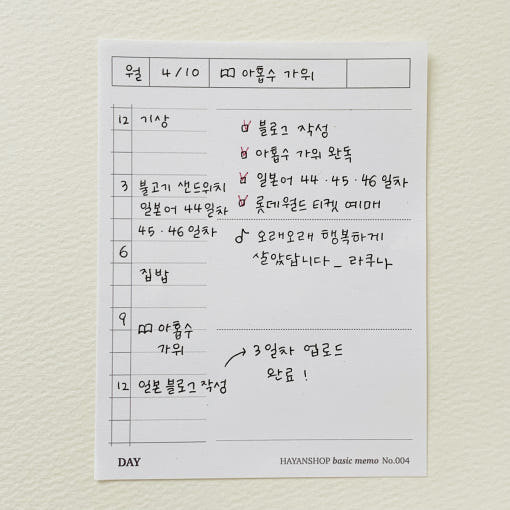 월 4/10 아홉수 가위
12 기상
3 불고기 샌드위치
일본어 44일차
45·46일차
6
집밥
9
아홉수
가위
12 일본 블로그 작성
블로그 작성
아홉수 가위 완독
일본어 44·45·46일차
롯데월드 티켓 예매
♪ 오래오래 행복하게
살았답니다_ 라쿠나
→ 3일차 업로드
완료!
DAY
HAYANSHOP basic memo No.004